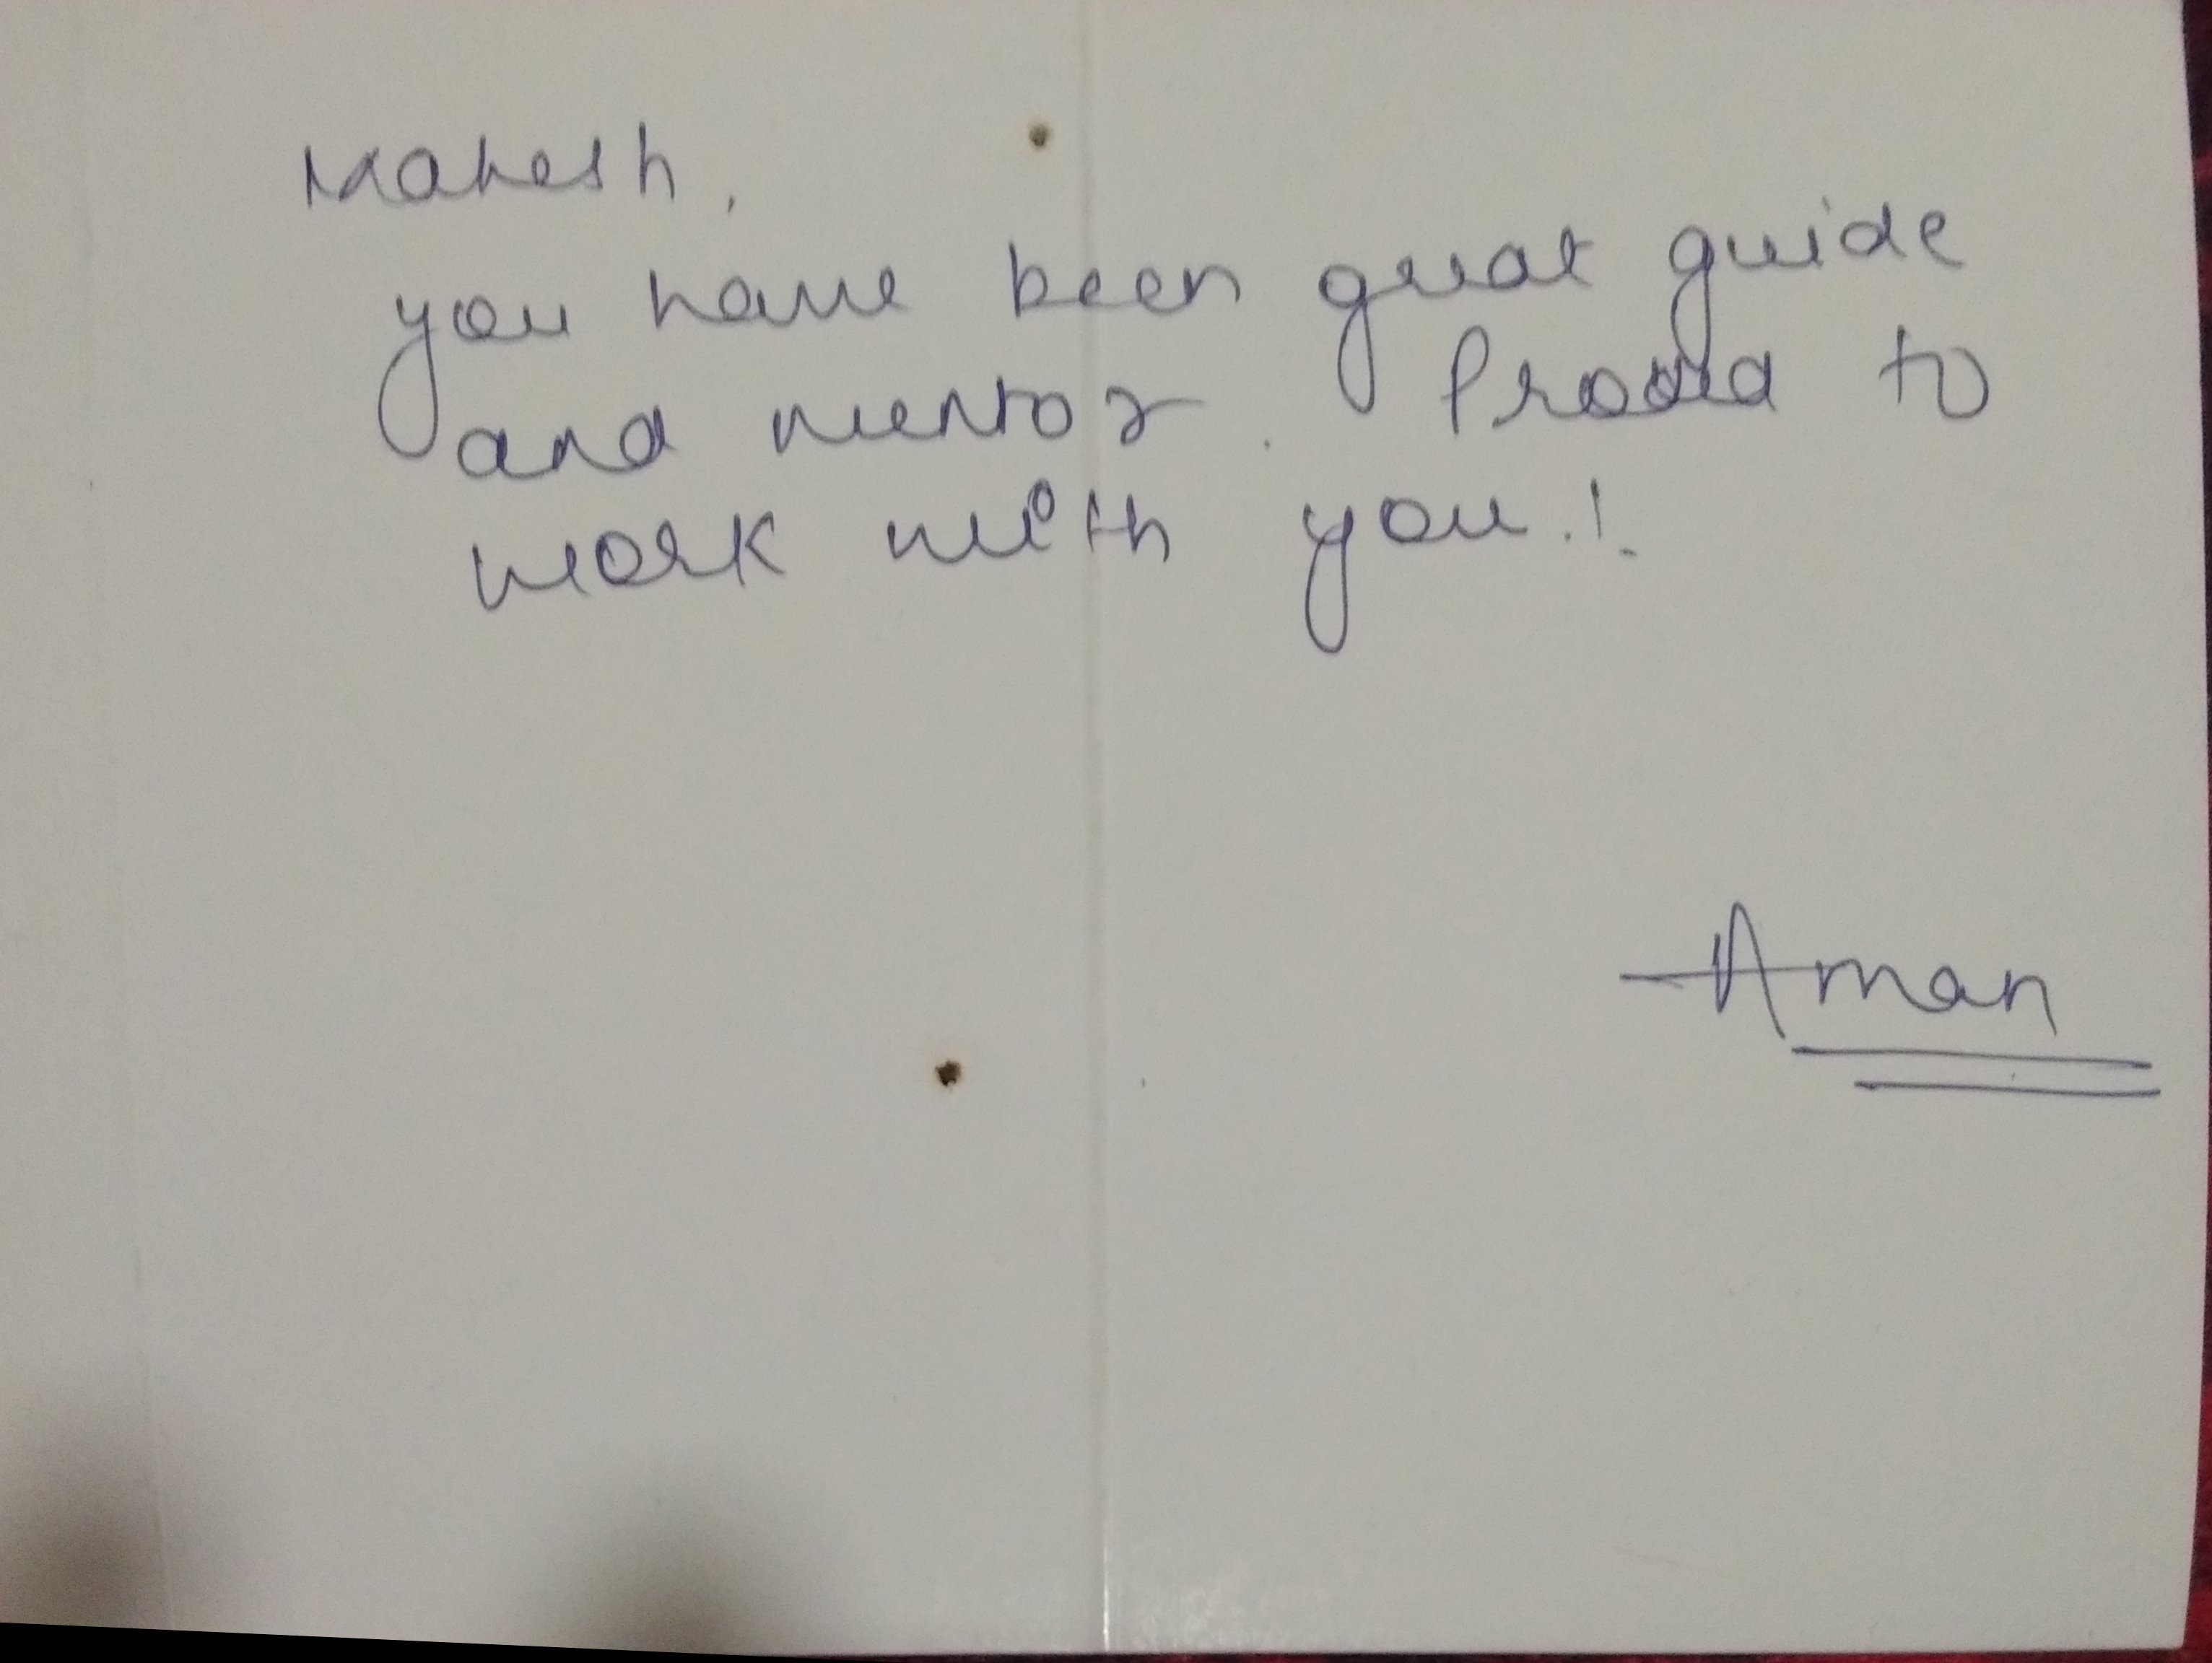 Mahesh,
you have been great guide
and mentor. Proud to
work with you.!
Aman